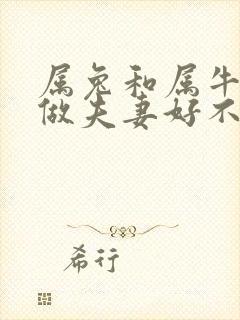 属兔和属牛
做夫妻好不
希行